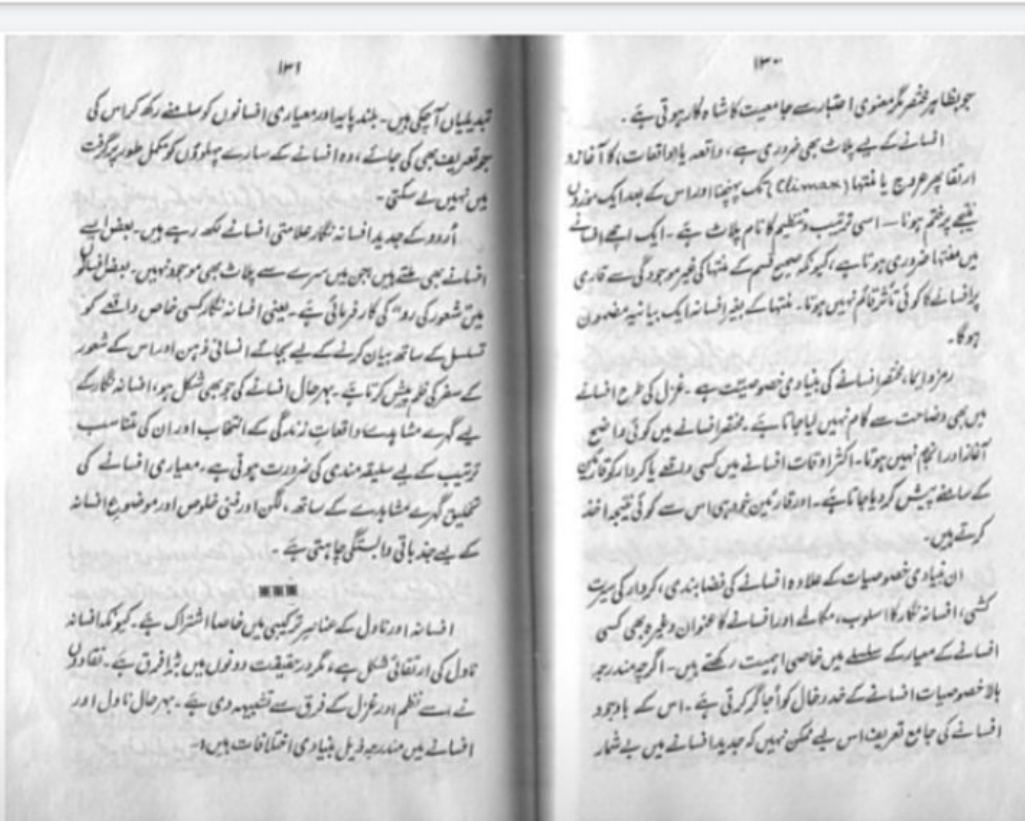 ۱۳۰
جو بظاہر مختصر مگر معنوی اعتبار سے جامعیت کا شاہ کار ہوتی ہے۔
افسانے کے لیے پلاٹ بھی ضروری ہے، واقعہ یا واقعات، کا آغاز و
ارتقا پھر عروج یا منتہا (Climax) تک پہنچنا اور اس کے بعد ایک موزوں
نتیجے پر ختم ہونا — اسی ترتیب و تنظیم کا نام پلاٹ ہے۔ ایک اچھے افسانے
میں منتہا ضروری ہوتا ہے، کیونکہ صحیح قسم کے منتہا کی غیر موجودگی سے قاری
پر افسانے کا کوئی تأثر قائم نہیں ہوتا۔ منتہا کے بغیر افسانہ ایک بیانیہ مضمون
ہوگا۔
رمز و ایما، مختصر افسانے کی بنیادی خصوصیت ہے۔ غزل کی طرح افسانے
میں بھی وضاحت سے کام نہیں لیا جاتا ہے۔ مختصر افسانے میں کوئی واضح
آغاز اور انجام نہیں ہوتا۔ اکثر اوقات افسانے میں کسی واقعے یا کردار کو قارئین
کے سامنے پیش کر دیا جاتا ہے۔ اور قارئین خود ہی اس سے کوئی نتیجہ اخذ
کرتے ہیں۔
ان بنیادی خصوصیات کے علاوہ افسانے کی فضا بندی، کردار کی سیرت
کشی، افسانہ نگار کا اسلوب، مکالمے اور افسانے کا عنوان وغیرہ بھی کسی
افسانے کے معیار کے سلسلے میں خاصی اہمیت رکھتے ہیں۔ اگرچہ مندرجہ
بالا خصوصیات افسانے کے خد و خال کو اُجاگر کرتی ہے۔ اس کے باوجود
افسانے کی جامع تعریف اس لیے ممکن نہیں کہ جدید افسانے میں بے شمار
۱۳۱
تبدیلیاں آچکی ہیں۔ بلند پایہ اور معیاری افسانوں کو سامنے رکھ کر اس کی
جو تعریف بھی کی جائے، وہ افسانے کے سارے پہلوؤں کو مکمل طور پر گرفت
میں نہیں لے سکتی۔
اُردو کے جدید افسانہ نگار علامتی افسانے لکھ رہے ہیں۔ بعض ایسے
افسانے بھی ملتے ہیں جن میں سرے سے پلاٹ بھی موجود نہیں۔ بعض افسانوں
میں "شعور کی رو" کی کارفرمائی ہے۔ یعنی افسانہ نگار کسی خاص واقعے کو
تسلسل کے ساتھ بیان کرنے کے لیے بجائے انسانی ذہن اور اس کے شعور
کے سفر کی نظم پیش کرتا ہے۔ بہرحال افسانے کی جو بھی شکل ہو، افسانہ نگار کے
لیے گہرے مشاہدے واقعاتِ زندگی کے انتخاب اور ان کی متناسب
ترتیب کے لیے سلیقہ مندی کی ضرورت ہوتی ہے۔ معیاری افسانے کی
تخلیق گہرے مشاہدے کے ساتھ، لگن اور فنی خلوص اور موضوعِ افسانہ
کے لیے جذباتی وابستگی چاہتی ہے۔
■■■
افسانہ اور ناول کے عناصرِ ترکیبی میں خاصا اشتراک ہے۔ کیونکہ افسانہ
ناول کی ارتقائی شکل ہے، مگر درحقیقت دونوں میں بڑا فرق ہے۔ نقادوں
نے اسے نظم اور غزل کے فرق سے تشبیہہ دی ہے۔ بہرحال ناول اور
افسانے میں مندرجہ ذیل بنیادی اختلافات ہیں: